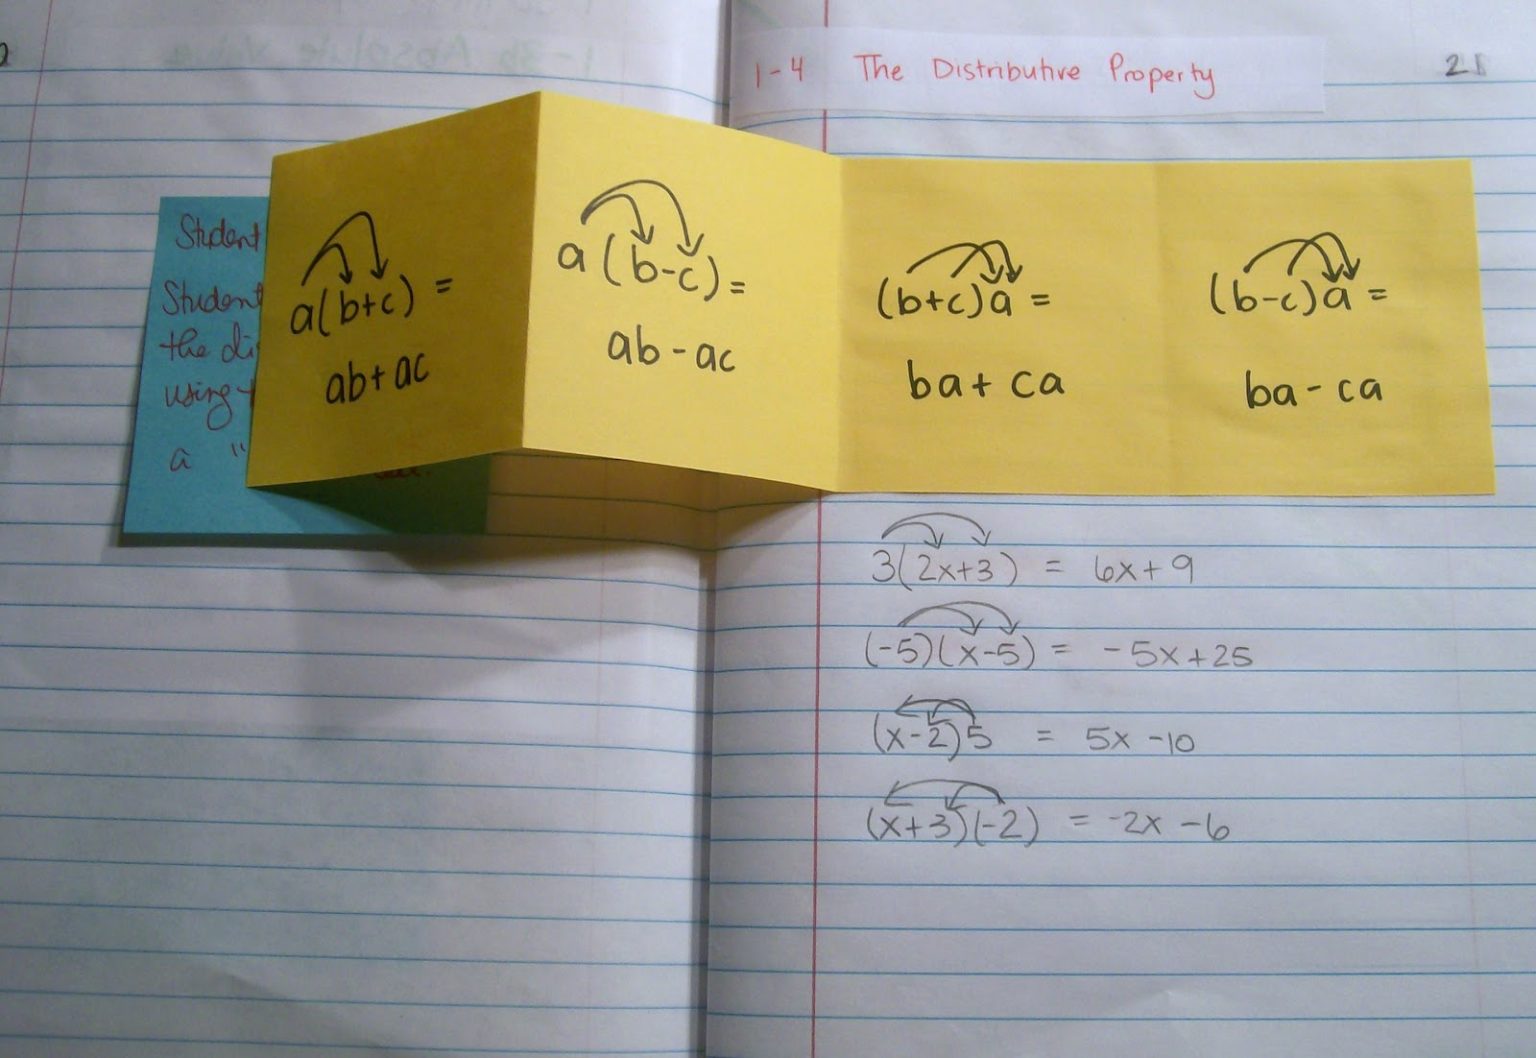 1-3b Absolute Value
1-4 The Distributive Property
21
Student
Student
the di
using
a "
a(b+c) =
ab+ac
a(b-c) =
ab-ac
(b+c)a =
ba+ca
(b-c)a =
ba-ca
3(2x+3) = 6x+9
(-5)(x-5) = -5x+25
(x-2)5 = 5x-10
(x+3)(-2) = -2x-6